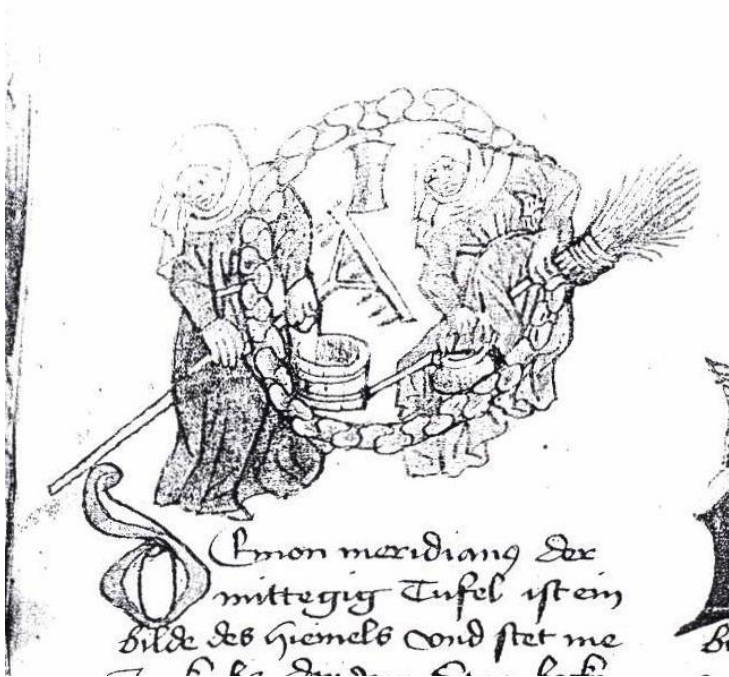 Demon meridianꝰ der
mittegig Tufel ist ein
bilde des hiemels vnd stet me